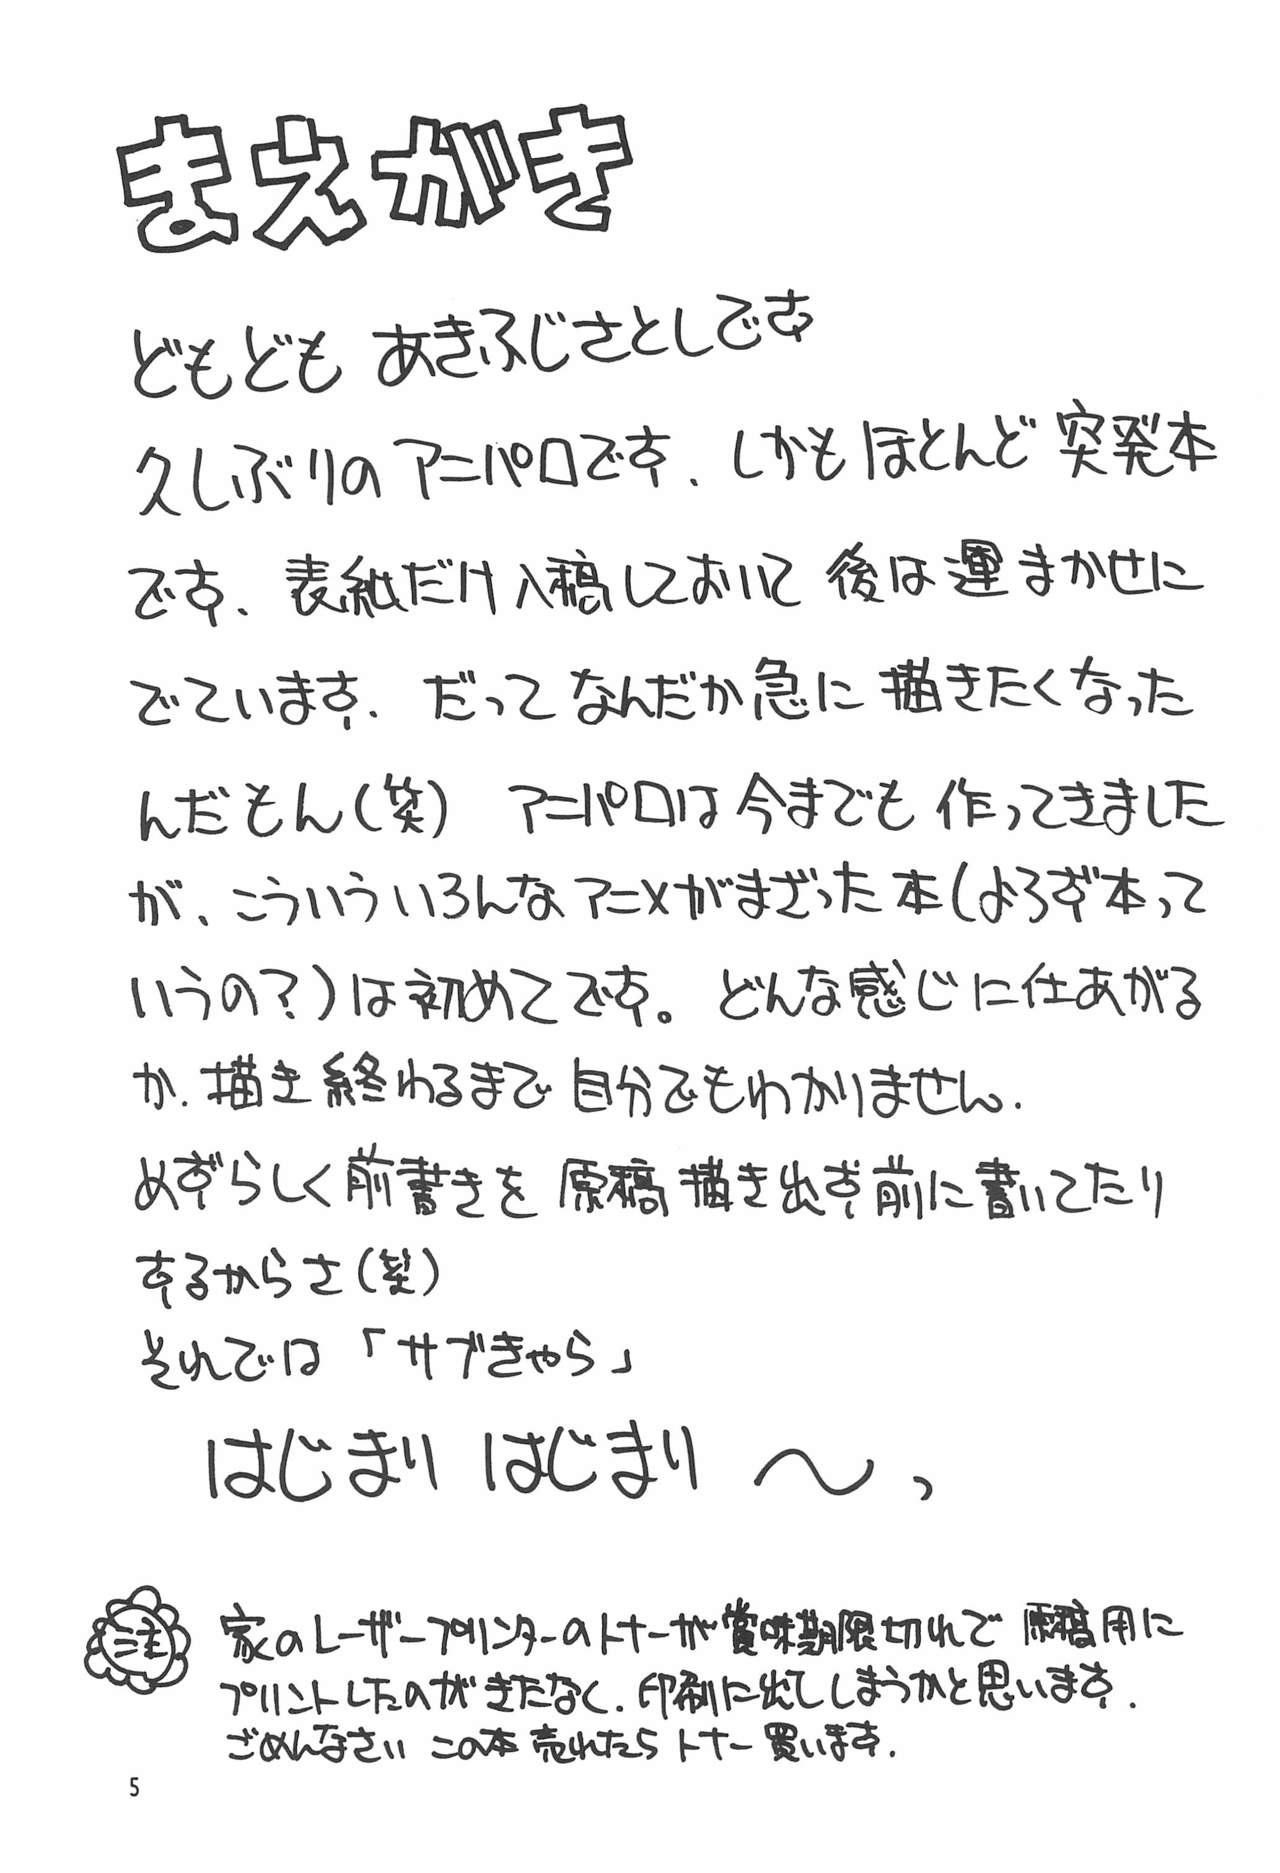 まえがき
どもども あきふじさとしです
久しぶりのアニパロです、しかもほとんど突発本
です、表紙だけ入稿しておいて後は運まかせに
でています、だってなんだか急に描きたくなった
んだもん(笑) アニパロは今までも作ってきました
が、こういういろんなアニメがまざった本(よろず本って
いうの?)は初めてです。どんな感じに仕あがる
か、描き終わるまで自分でもわかりません、
めずらしく前書きを原稿描き出す前に書いてたり
するからさ(笑)
それでは「サブきゃら」
はじまり はじまり 〜っ
注
家のレーザープリンターのトナーが賞味期限切れで原稿用に
プリントしたのがきたなく、印刷に出てしまうかと思います、
ごめんなさい この本売れたらトナー買います、
5